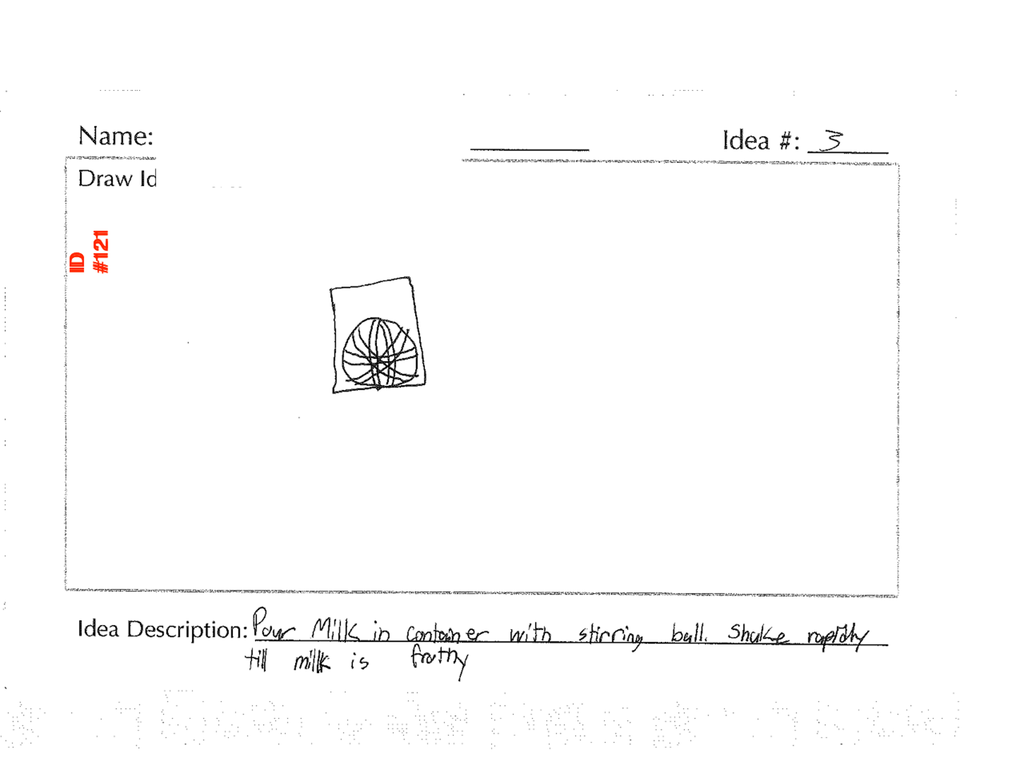 Name:
Idea #: 3
Draw Id
ID
#121
Idea Description: Pour Milk in container with stirring ball. Shake rapidly
till milk is frothy